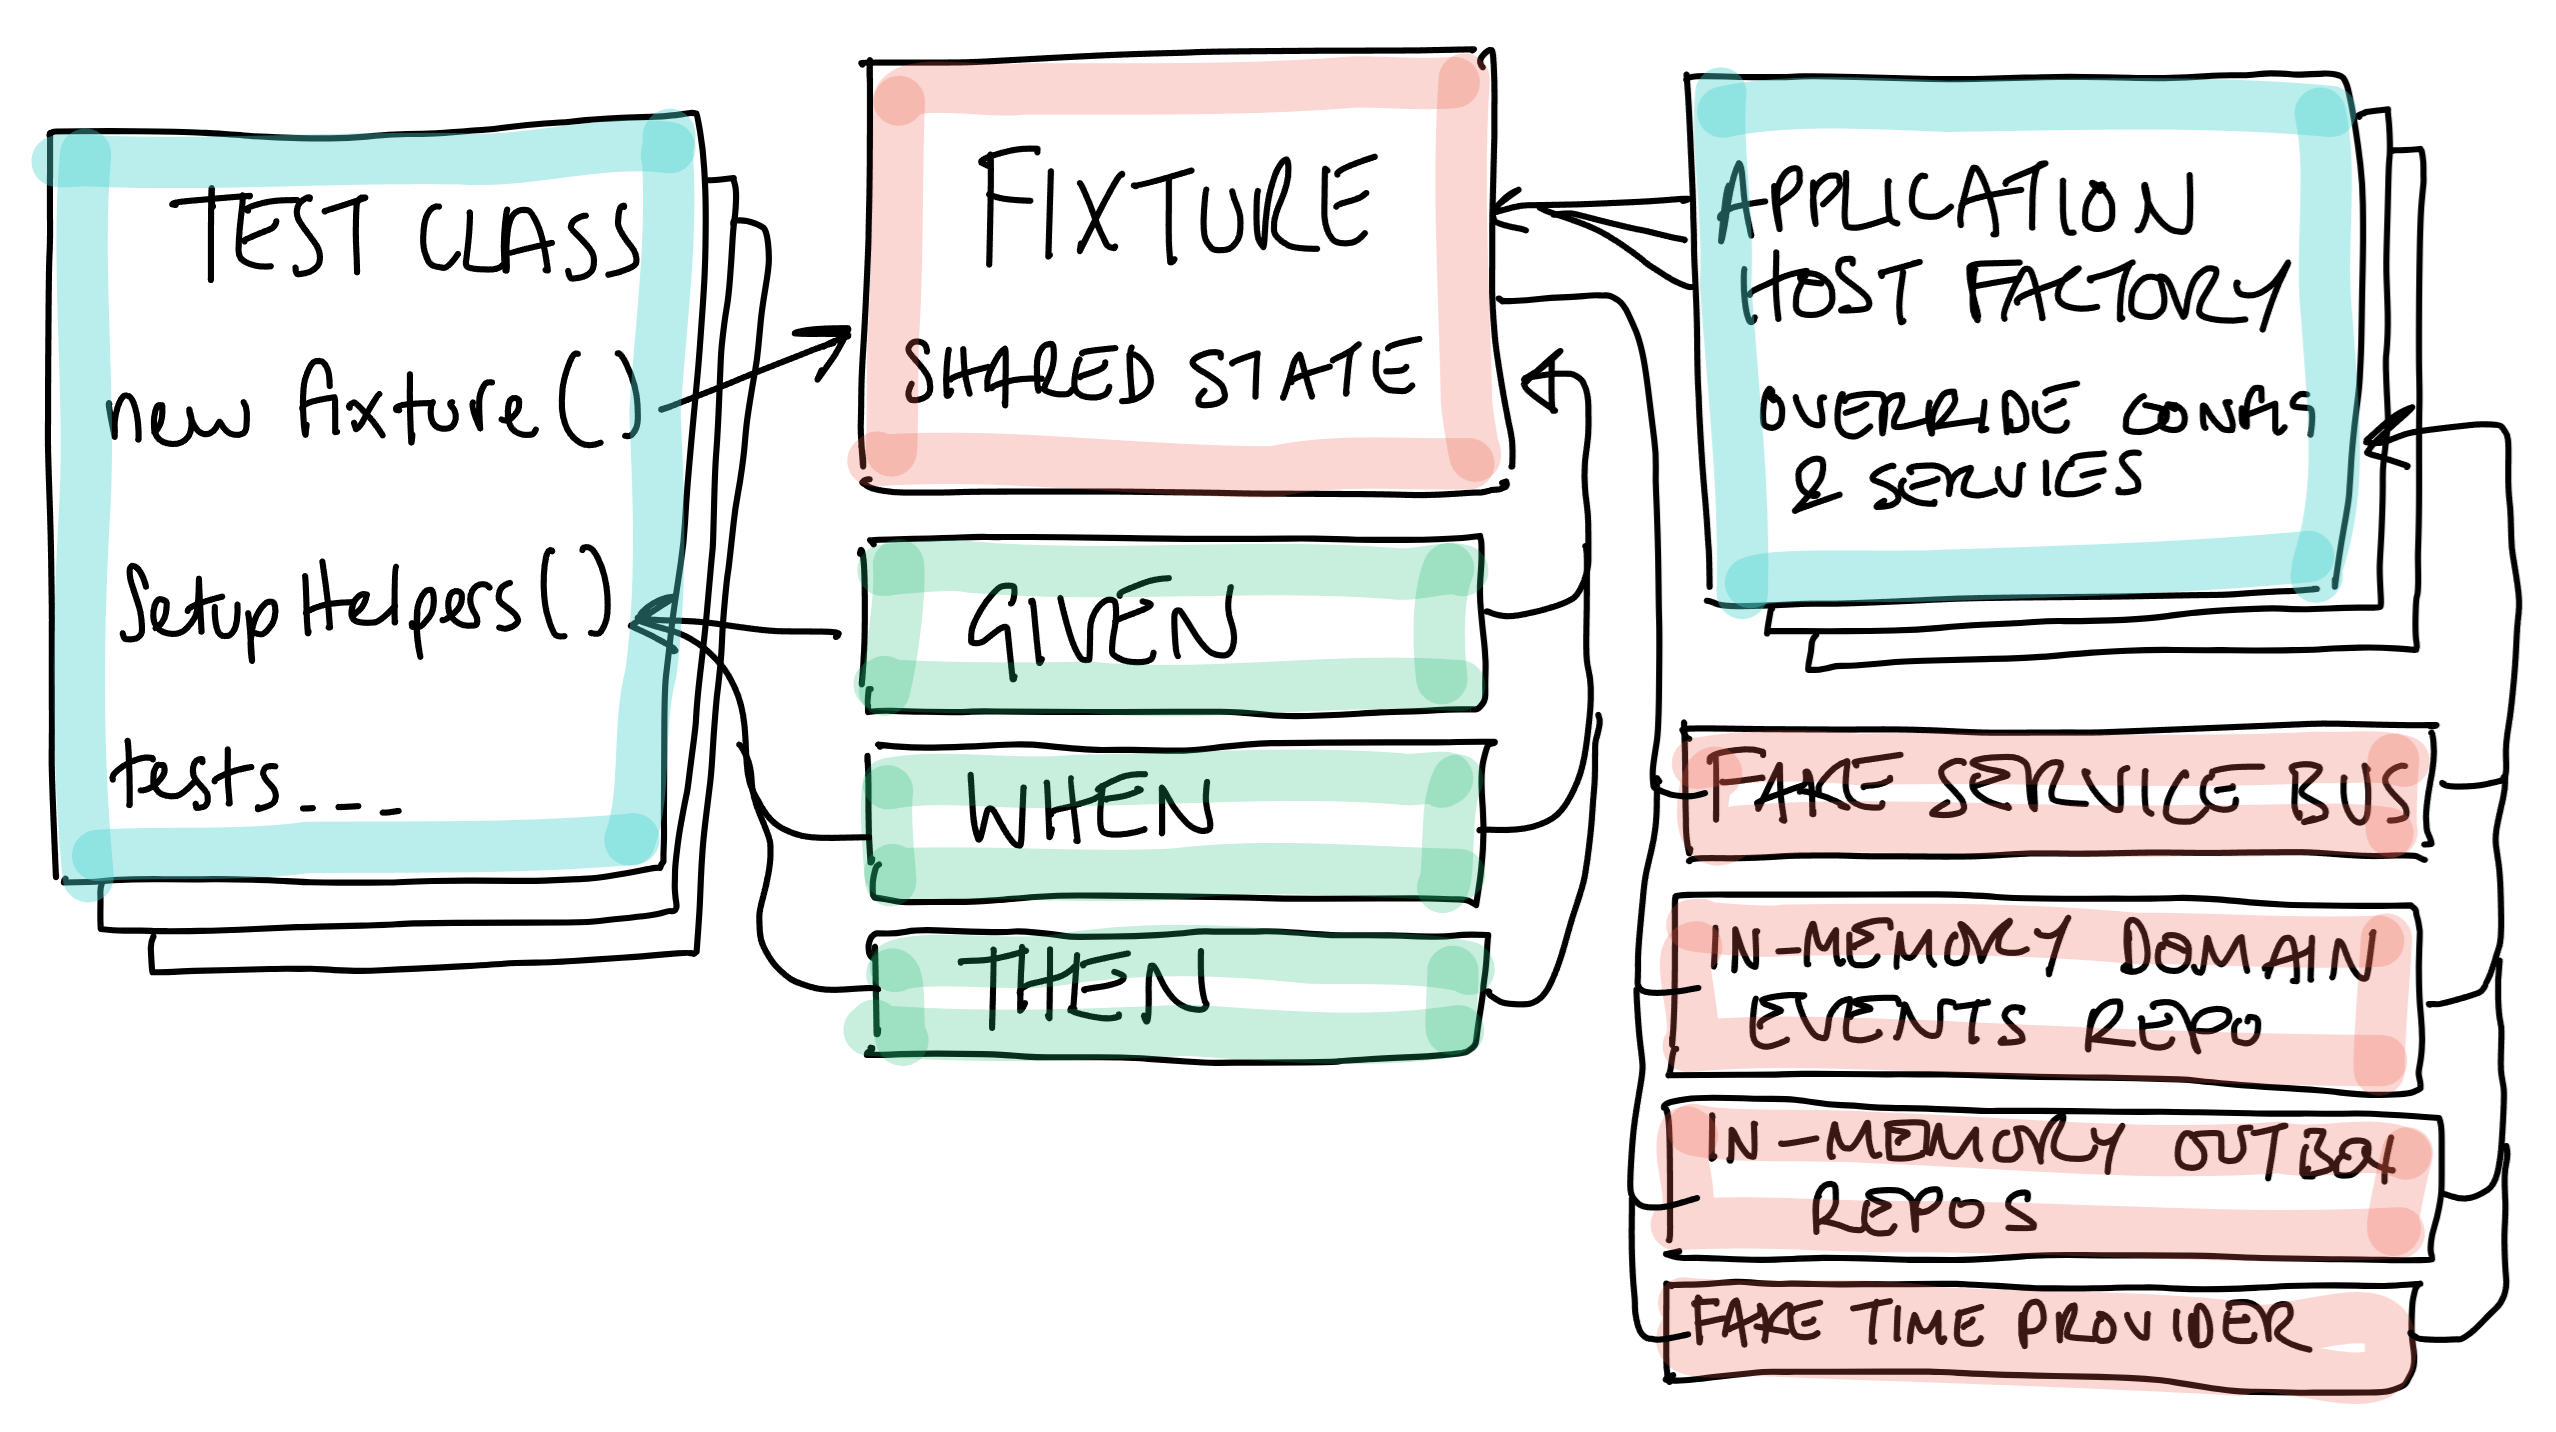 TEST CLASS
new fixture()
SetupHelpers()
tests---
FIXTURE
SHARED STATE
GIVEN
WHEN
THEN
APPLICATION
HOST FACTORY
OVERRIDE CONFIG
& SERVICES
FAKE SERVICE BUS
IN-MEMORY DOMAIN
EVENTS REPO
IN-MEMORY OUTBOX
REPOS
FAKE TIME PROVIDER